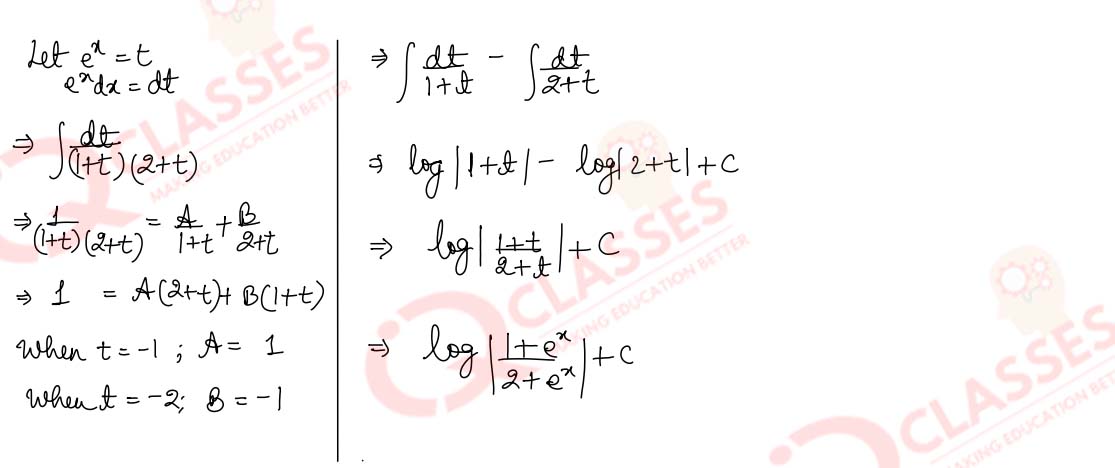 Let e^x = t
e^x dx = dt
⇒ ∫ dt/((1+t)(2+t))
⇒ 1/((1+t)(2+t)) = A/(1+t) + B/(2+t)
⇒ 1 = A(2+t)+ B(1+t)
When t = -1 ; A = 1
When t = -2; B = -1
⇒ ∫ dt/(1+t) - ∫ dt/(2+t)
⇒ log |1+t| - log |2+t| + C
⇒ log | (1+t)/(2+t) | + C
⇒ log | (1+e^x)/(2+e^x) | + C
CLASSES
MAKING EDUCATION BETTER
CLASSES
MAKING EDUCATION BETTER
CLASSES
MAKING EDUCATION BETTER